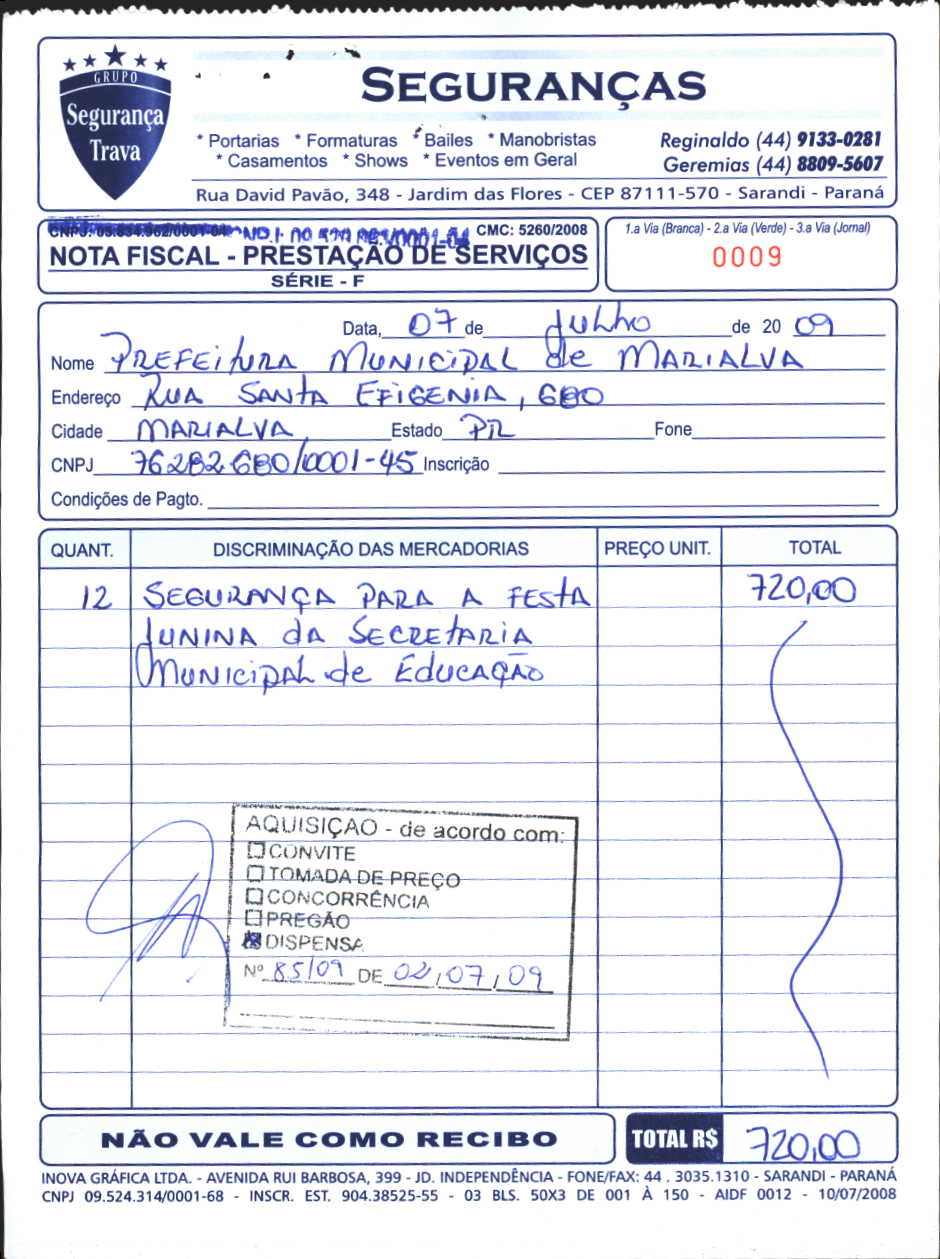 GRUPO
Segurança
Trava
SEGURANÇAS
* Portarias * Formaturas * Bailes * Manobristas
* Casamentos * Shows * Eventos em Geral
Reginaldo (44) 9133-0281
Geremias (44) 8809-5607
Rua David Pavão, 348 - Jardim das Flores - CEP 87111-570 - Sarandi - Paraná
CNPJ: CMC: 5260/2008
NOTA FISCAL - PRESTAÇÃO DE SERVIÇOS
SÉRIE - F
1.a Via (Branca) - 2.a Via (Verde) - 3.a Via (Jornal)
0009
Data, 07 de Julho de 20 09
Nome PREFEITURA MUNICIPAL de MARIALVA
Endereço RUA SANTA EFIGENIA, 680
Cidade MARIALVA Estado PR Fone
CNPJ 76282680/0001-45 Inscrição
Condições de Pagto.
QUANT. DISCRIMINAÇÃO DAS MERCADORIAS PREÇO UNIT. TOTAL
12 SEGURANÇA PARA A FESTA 720,00
JUNINA da SECRETARIA
MUNICIPAL de EDUCAÇÃO
AQUISIÇAO - de acordo com:
CONVITE
TOMADA DE PREÇO
CONCORRÊNCIA
PREGÃO
DISPENSA
Nº 85/09 DE 02/07/09
NÃO VALE COMO RECIBO
TOTAL R$ 720,00
INOVA GRÁFICA LTDA. - AVENIDA RUI BARBOSA, 399 - JD. INDEPENDÊNCIA - FONE/FAX: 44 . 3035.1310 - SARANDI - PARANÁ
CNPJ 09.524.314/0001-68 - INSCR. EST. 904.38525-55 - 03 BLS. 50X3 DE 001 À 150 - AIDF 0012 - 10/07/2008